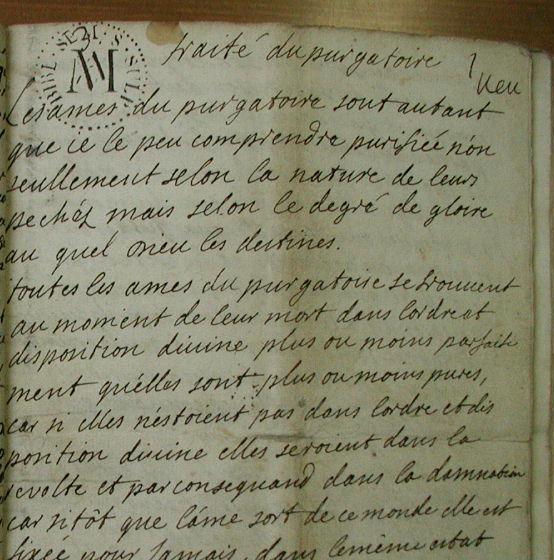 BIBL. SEM. S. SULP.
traité du purgatoire
veu
Les ames du purgatoire sont autant
que ie le peu comprendre purifiée non
seullement selon la nature de leurs
pechéz mais selon le degré de gloire
au quel Dieu les destines.
toutes les ames du purgatoire se trouuent
au moment de leur mort dans lordre et
disposition diuine plus ou moins parfaite
ment quélles sont plus ou moins pures,
car si elles nestoient pas dans lordre et dis
position diuine elles seroient dans la
reuolte et par consequand dans la damnation
car sitôt que lâme sort de ce monde elle est
fixée pour jamais dans le mème estat